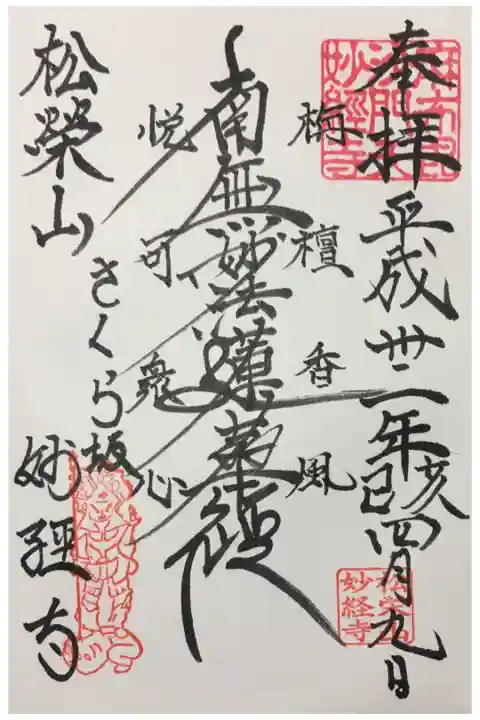 奉拝 平成卅一年己亥四月九日
栴檀香風
南無妙法蓮華経
悦可衆心
松榮山 さくら坂 妙經寺
松栄山
妙経寺